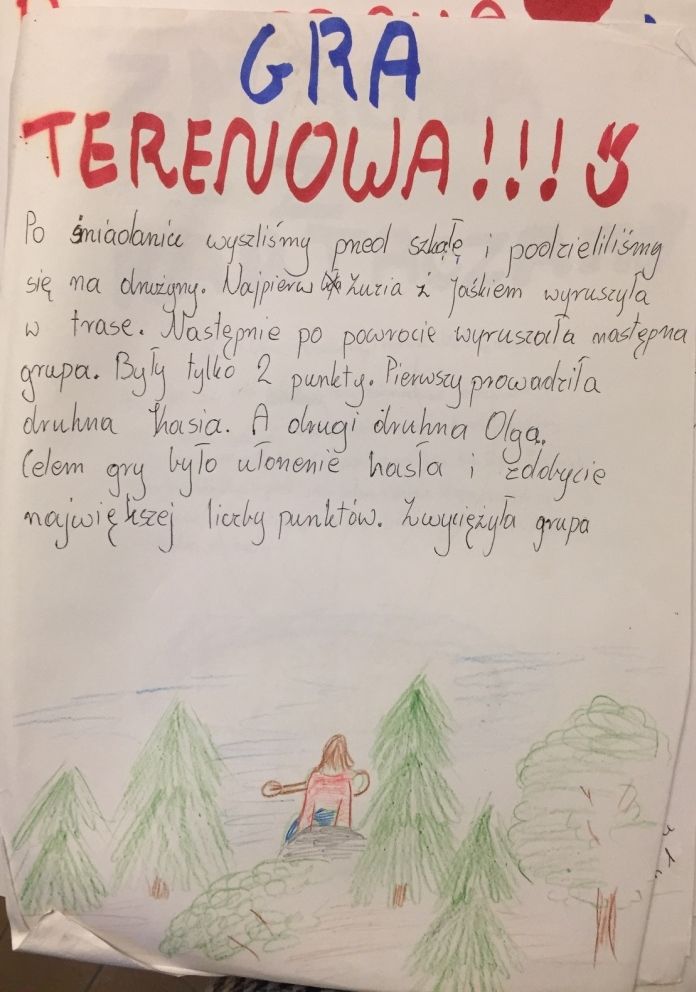 GRA
TERENOWA!!!
Po śniadaniu wyszliśmy przed szkołę i podzieliliśmy
się na drużyny. Najpierw Zuzia z Jaśkiem wyruszyła
w trase. Następnie po powrocie wyruszała następna
grupa. Były tylko 2 punkty. Pierwszy prowadziła
druhna Kasia. A drugi druhna Olga.
Celem gry było ułożenie hasła i zdobycie
największej liczby punktów. Zwyciężyła grupa